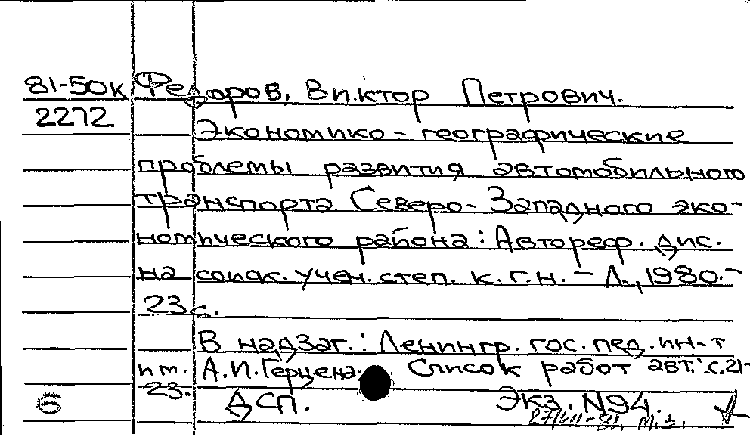 81-50к Федоров, Виктор Петрович.
2272
Экономико-географические
проблемы развития автомобильного
транспорта Северо-Западного эко-
номического района: Автореф. дис.
на соиск. учен. степ. к.г.н. - Л., 1980.-
23 с.
В надзаг.: Ленингр. гос. пед. ин-т
им. А.И.Герцена. Список работ авт.: с.21-
23.
б ДСП. Экз. N94